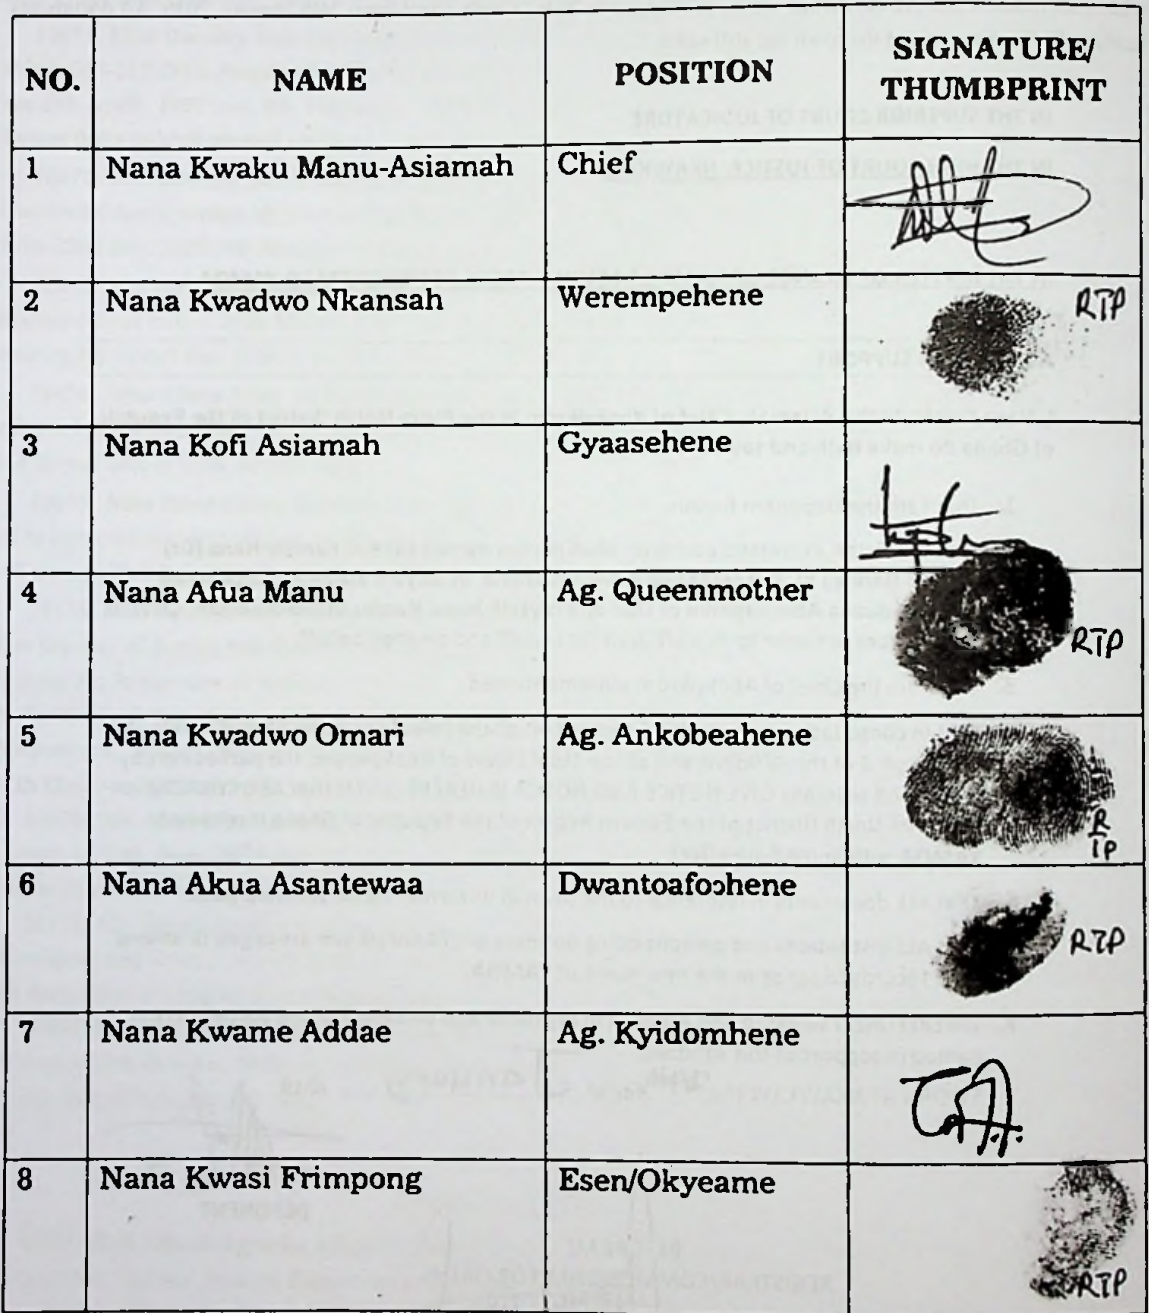 NO. NAME POSITION SIGNATURE/
THUMBPRINT
1 Nana Kwaku Manu-Asiamah Chief
2 Nana Kwadwo Nkansah Werempehene RTP
3 Nana Kofi Asiamah Gyaasehene
4 Nana Afua Manu Ag. Queenmother RTP
5 Nana Kwadwo Omari Ag. Ankobeahene R
TP
6 Nana Akua Asantewaa Dwantoafoɔhene RTP
7 Nana Kwame Addae Ag. Kyidomhene
8 Nana Kwasi Frimpong Esen/Okyeame RTP